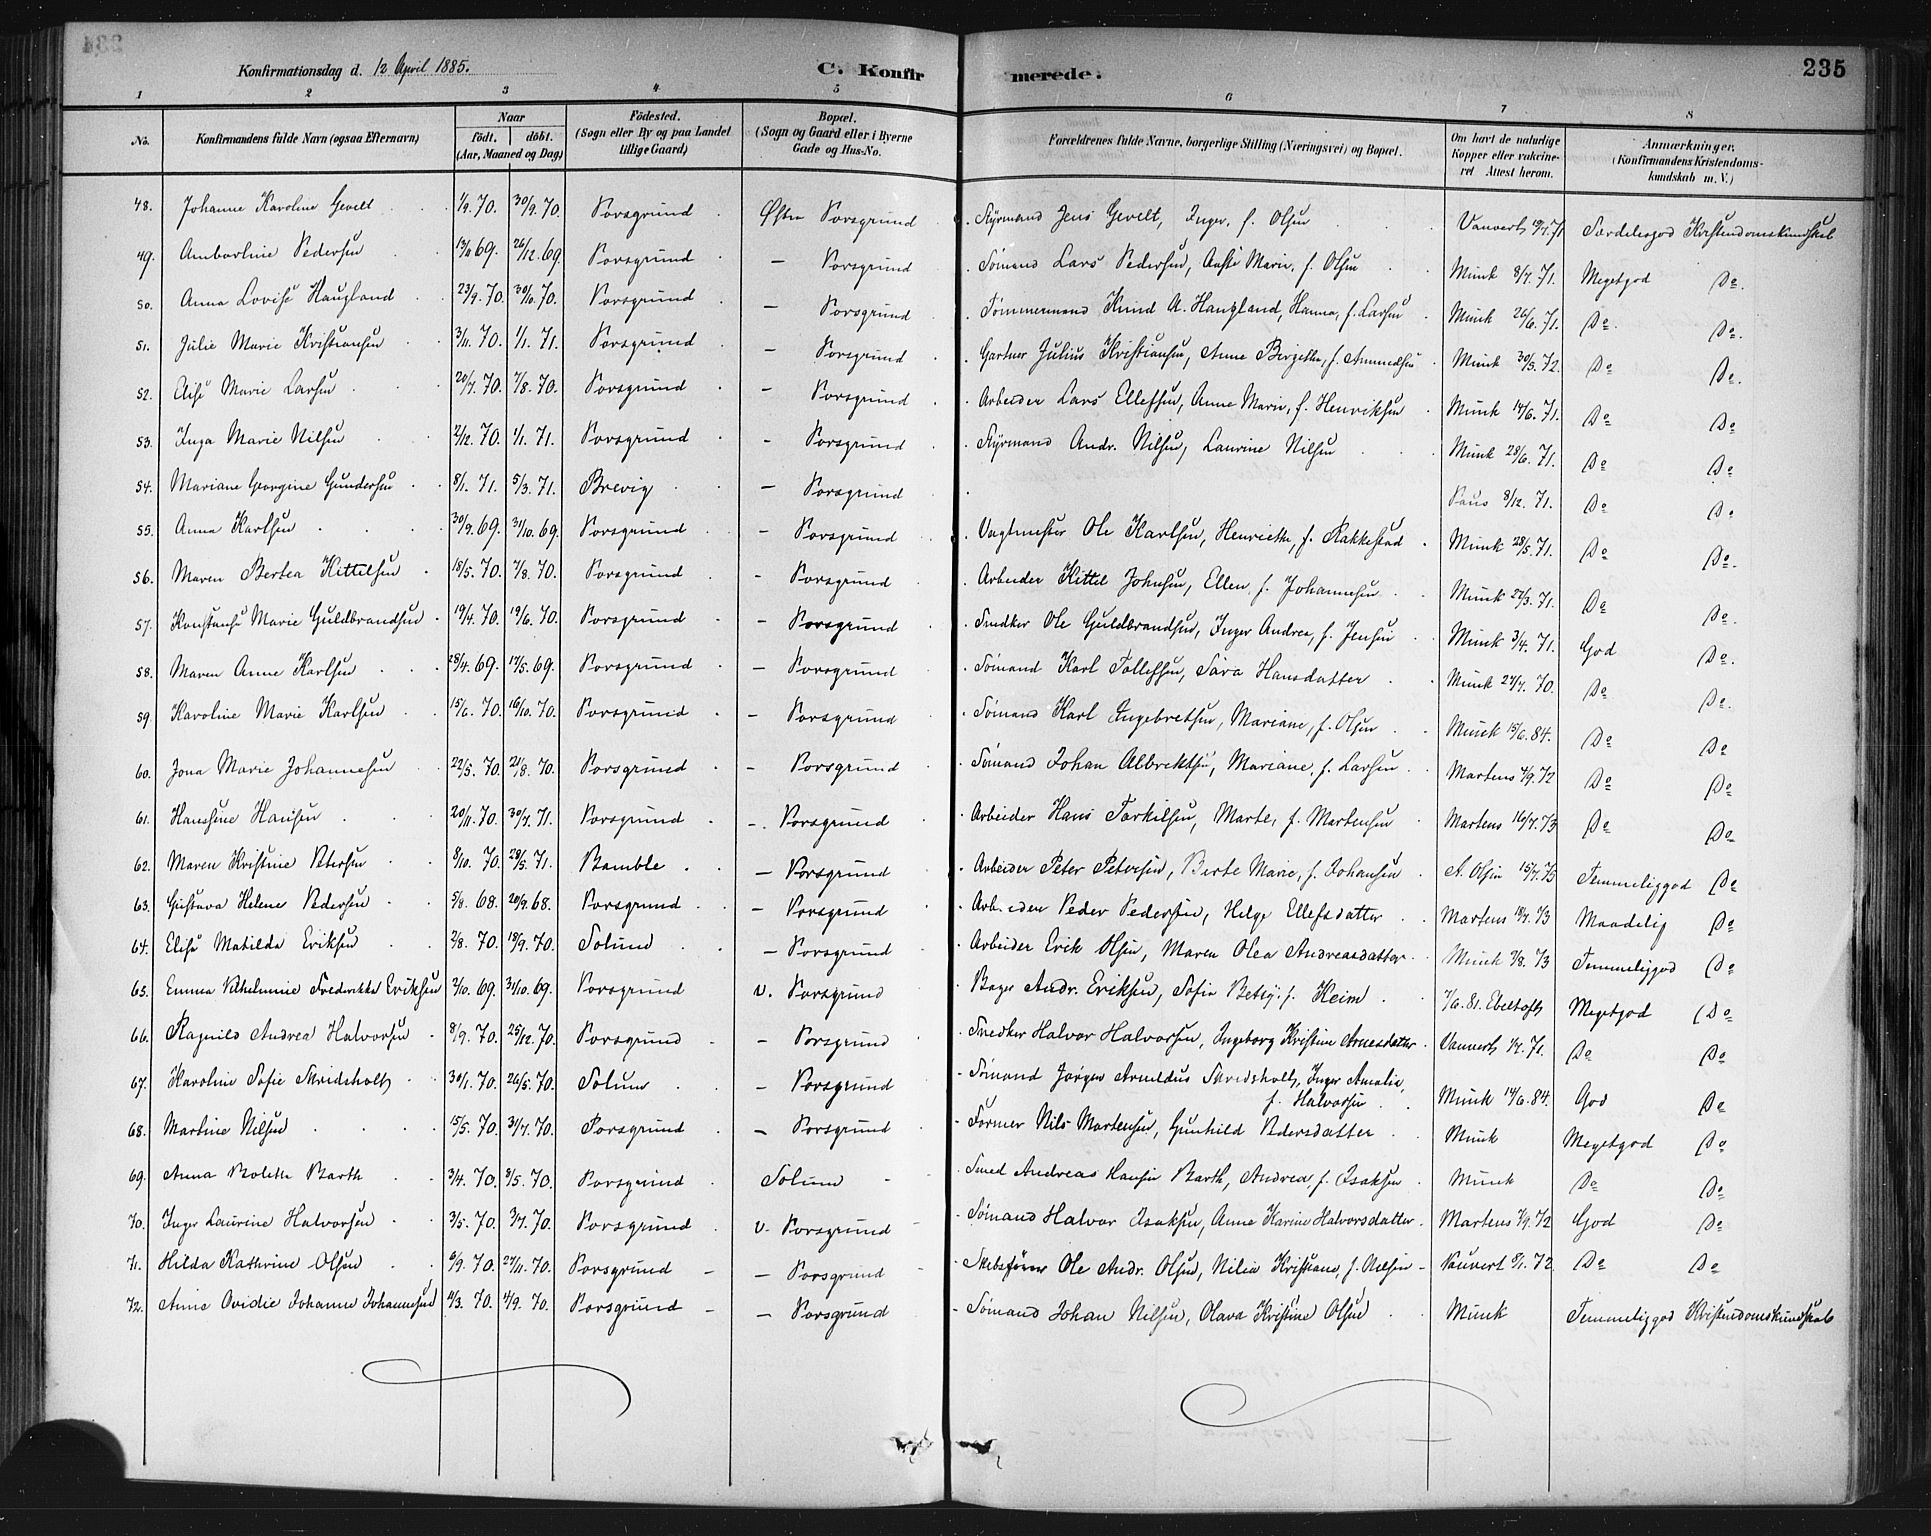 Konfirmationsdag d. 12 April 1885. C. Konfirmerede. 235
1 2 3 4 5 6 7 8
No. Konfirmandens fulde Navn (ogsaa Efternavn) Naar født. døbt. (Aar, Maaned og Dag) Fødested. (Sogn eller By og paa Landet tillige Gaard) Bopæl. (Sogn og Gaard eller i Byerne Gade og Hus-No. Forældrenes fulde Navne, borgerlige Stilling (Næringsvei) og Bopæl. Om havt de naturlige Kopper eller vakcineret Attest herom. Anmærkninger. (Konfirmandens Kristendomskundskab m. V.)
48. Johanne Karoline Gevelt 1/9. 70. 30/9. 70. Porsgrund Østre Porsgrund Styrmand Jens Gevelt, Inger, f. Olsen Vauvert 71 Særdelesgod Kristendomskundskab
49. Amborlinie Pedersen 69. 26/12. 69 Porsgrund — Porsgrund Sømand Lars Pedersen, Aaste Marie, f. Olsen Munk 8/7. 71. Megetgod Do.
50. Anna Lovise Haugland 23/9. 70. 30/10. 70. Porsgrund — Porsgrund Tømmermand Knud A. Haugland, Hanna, f. Larsen Munk 26/6. 71. Do. Do.
51. Julie Marie Kristiansen 3/11. 70. 1/1. 71. Porsgrund — Porsgrund Gartner Julius Kristiansen, Anne Birgitte, f. Ammedsen Munk 30/5. 72. Do Do.
52. Elise Marie Larsen 20/7. 70. 7/8. 70. Porsgrund — Porsgrund Arbeider Lars Ellefsen, Anne Marie, f. Henriksen Munk 14/6. 71. Do Do
53. Inga Marie Nilsen 2/12. 70. 1/1. 71. Porsgrund — Porsgrund Styrmand Andr. Nilsen, Laurine Nilsen Munk 28/6. 71. Do Do
54. Mariane Georgine Gundersen 8/1. 71. 5/3. 71. Brevig — Porsgrund Paus 8/12. 71. Do Do
55. Anna Karlsen 30/9. 69. 31/10. 69. Porsgrund — Porsgrund Vagtmester Ole Karlsen, Henriette, f. Rakkestad Munk 28/5. 71. Do Do.
56. Maren Bertea Kittelsen 18/5. 70. 7/8. 70. Porsgrund — Porsgrund Arbeider Kittel Johnsen, Ellen, f. Johannesen Munk 27/3. 71. Do Do.
57. Konstanse Marie Guldbrandsen 19/4. 70. 19/6. 70. Porsgrund — Porsgrund Snedker Ole Guldbrandsen, Inger Andrea, f. Jensen Munk 3/4. 71. God Do.
58. Maren Anne Karlsen 28/4. 69. 17/5. 69. Porsgrund — Porsgrund Sømand Karl Tollefsen, Sara Hansdatter Munk 27/7. 70. Do Do.
59. Karoline Marie Karlsen 15/6. 70. 16/10. 70. Porsgrund — Porsgrund Sømand Karl Ingebretsen, Mariane, f. Olsen Munk 15/6. 84. Do Do
60. Jona Marie Johannesen 22/5. 70. 21/8. 70. Porsgrund — Porsgrund Sømand Johan Albrektsen, Mariane, f. Larsen Martens 4/9. 72 Do Do
61. Hansine Hansen 20/11. 70. 30/7. 71. Porsgrund — Porsgrund Arbeider Hans Tarkilsen, Marte, f. Martensen Martens 16/7. 73 Do Do
62. Maren Kristine Petersen 8/10. 70. 28/5. 71. Bamble — Porsgrund Arbeider Peter Petersen, Berte Marie, f. Johansen A. Olsen 15/7. 75 Temmeliggod Do
63. Gustava Helene Pedersen 5/8. 68. 20/9. 68. Porsgrund — Porsgrund Arbeider Peder Pedersen, Helge Ellefsdatter Martens 73 Maadelig Do
64. Elise Matilda Eriksen 2/8. 70. 18/9. 70. Solum — Porsgrund Arbeider Erik Olsen, Maren Olea Andreasdatter Munk 7/8. 73 Temmeliggod Do
65. Emma Vilhelmine Frederikke Eriksen 2/10. 69. 31/10. 69. Porsgrund v. Porsgrund Bager Andr. Eriksen, Sofie Betsy, f. Heim 7/6. 81. Ebeltoft Megetgod Do
66. Ragnild Andrea Halvorsen 8/9. 70. 25/12. 70. Porsgrund — Porsgrund Snedker Halvor Halvorsen, Ingeborg Kristine Arnesdatter Vauvert 71. Do Do
67. Karoline Sofie Skridsholt 30/1. 70. 26/5. 70. Solum — Porsgrund Sømand Jørgen Arneldus Skridsholt, Inger Amalie, f. Halvorsen Munk 14/6. 84. God Do
68. Martine Nilsen 15/5. 70. 31/7. 70. Porsgrund — Porsgrund Former Nils Martensen, Gunhild Pedersdatter Munk Megetgod Do
69. Anna Bolette Barth 3/4. 70. 8/5. 70. Porsgrund Solum Smed Andreas Hansen Barth, Andrea, f. Isaksen Munk Do Do
70. Inger Laurine Halvorsen 3/5. 70. 3/7. 70. Porsgrund v. Porsgrund Sømand Halvor Isaksen, Anne Karine Halvorsdatter Martens 7/9. 72 God Do
71. Hilda Kathrine Olsen 6/9. 70. 27/11. 70. Porsgrund — Porsgrund Skibsfører Ole Andr. Olsen, Nilia Kristiane, f. Nelsen Vauvert 8/1. 72 Do Do
72. Anne Ovidie Johanne Johannesen 11/3. 70. 4/9. 70. Porsgrund — Porsgrund Sømand Johan Nilsen, Olava Kristine Olsen Munk Temmeliggod Kristendomskundskab